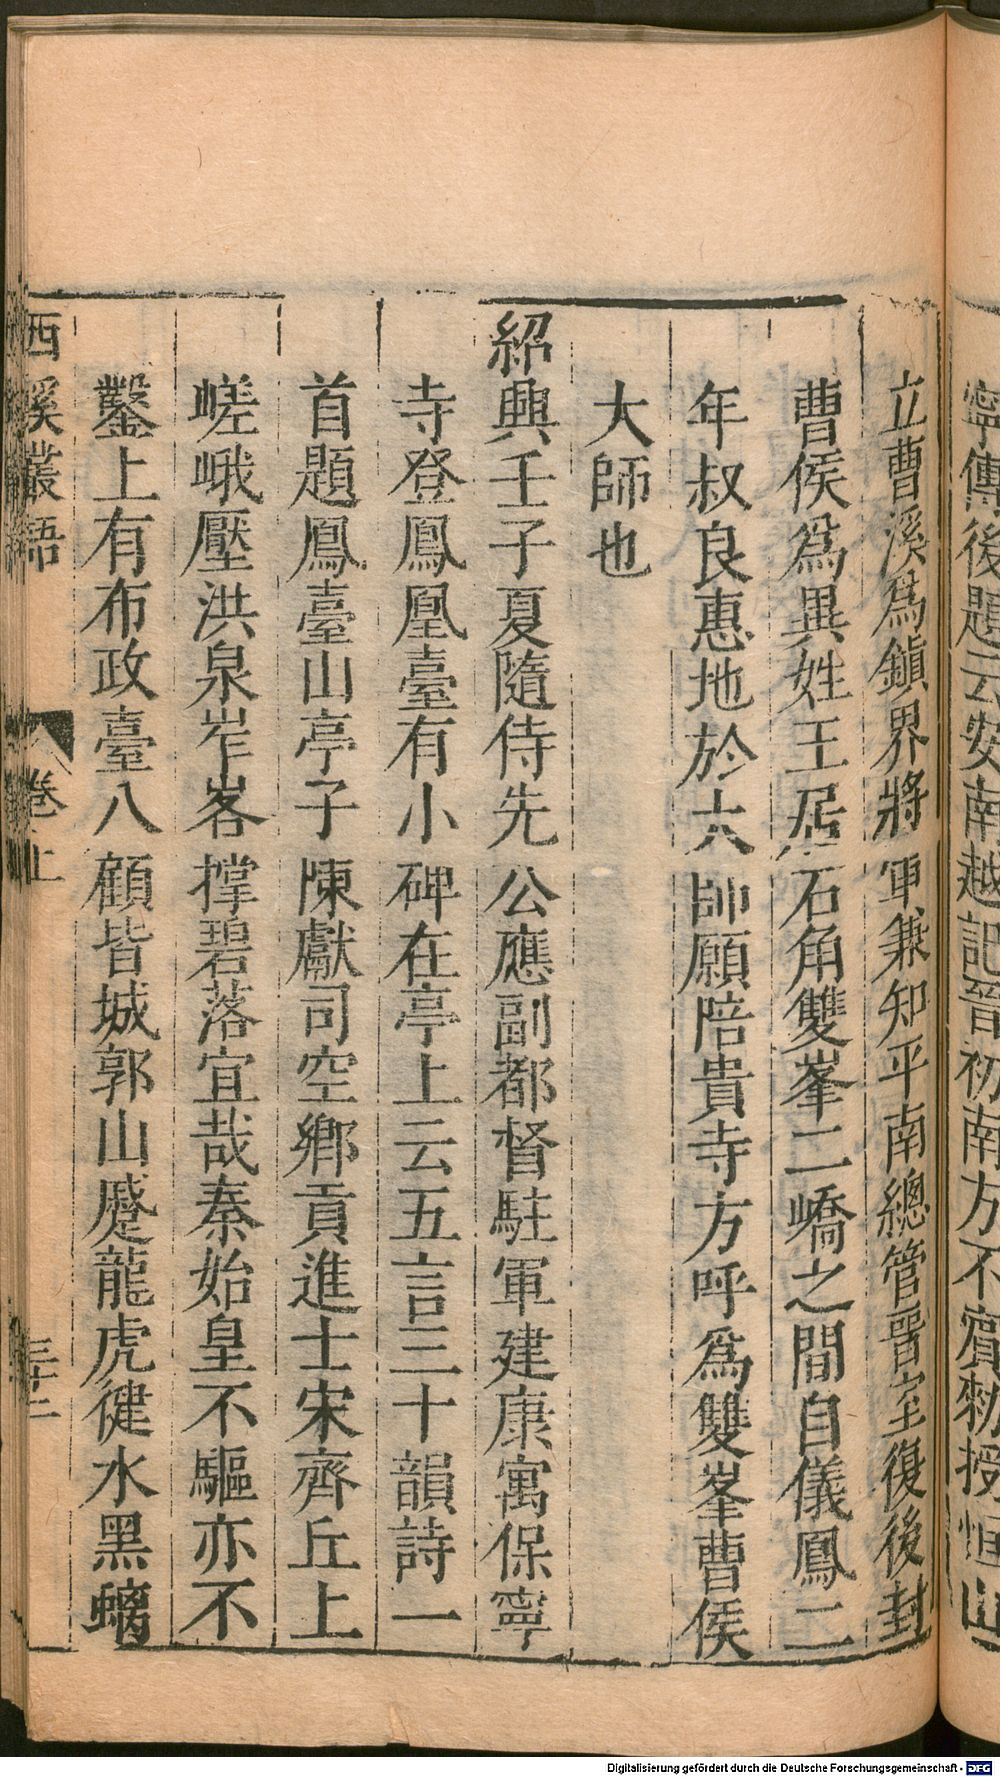 寧傳後題云安南越記晉初南方不賓勑授恒山
立曹溪爲鎭界將軍兼知平南總管晉室復後封
曹侯爲異姓王居石角雙峯二嶠之間自儀鳳二
年叔良惠地於大師願陪貴寺方呼爲雙峯曹侯
大師也
紹興壬子夏隨侍先公應副都督駐軍建康寓保寧
寺登鳳凰臺有小碑在亭上云五言三十韻詩一
首題鳳臺山亭子陳獻司空鄉貢進士宋齊丘上
嵯峨壓洪泉岝峉撑碧落宜哉秦始皇不驅亦不
鑿上有布政臺八顧皆城郭山蹙龍虎健水黑螭
西溪叢語 卷上 三十二
Digitalisierung gefördert durch die Deutsche Forschungsgemeinschaft - DFG